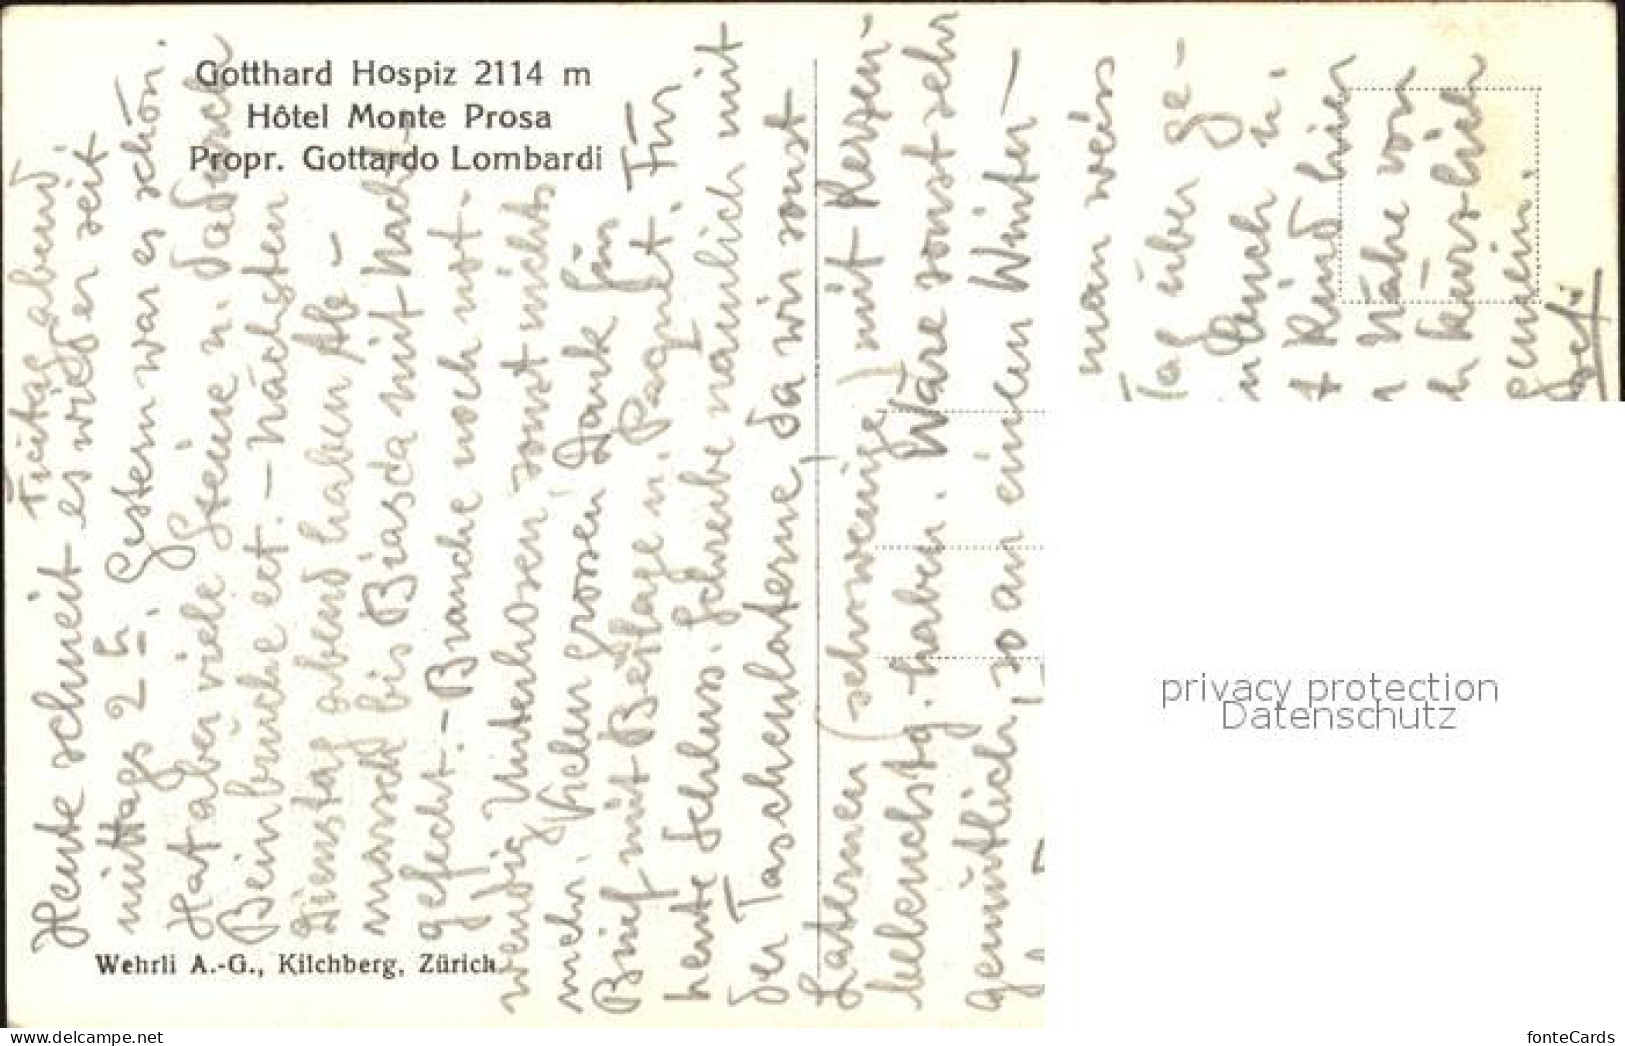 Gotthard Hospiz 2114 m
Hôtel Monte Prosa
Propr. Gottardo Lombardi
Freitag abend
Heute schneit es wieder seit
mittags 2 h. Gestern war es schön.
Hat aber viele Steine u. dadurch
Beinbrüche ect. – Nächsten
Dienstag abend haben Ab-
marsch bis Biasca mit Nacht-
gefecht. – Brauche noch not-
wendig Unterhosen, sonst nichts
mehr. Vielen grossen Dank für
Brief mit Beilage u. Paquet. Für
heute Schluss. Schreibe nämlich mit
der Taschenlaterne, da wir sonst
Laternen (schwenige) mit Kerzen-
beleuchtg. haben. Wäre sonst sehr
gemütlich, so an einem Winter-
man weiss
Tag über ge-
Euch u.
Kind hier
Nähe von
herzlich
Wehrli A.-G., Kilchberg, Zürich
privacy protection
Datenschutz
www.delcampe.net
fonteCards